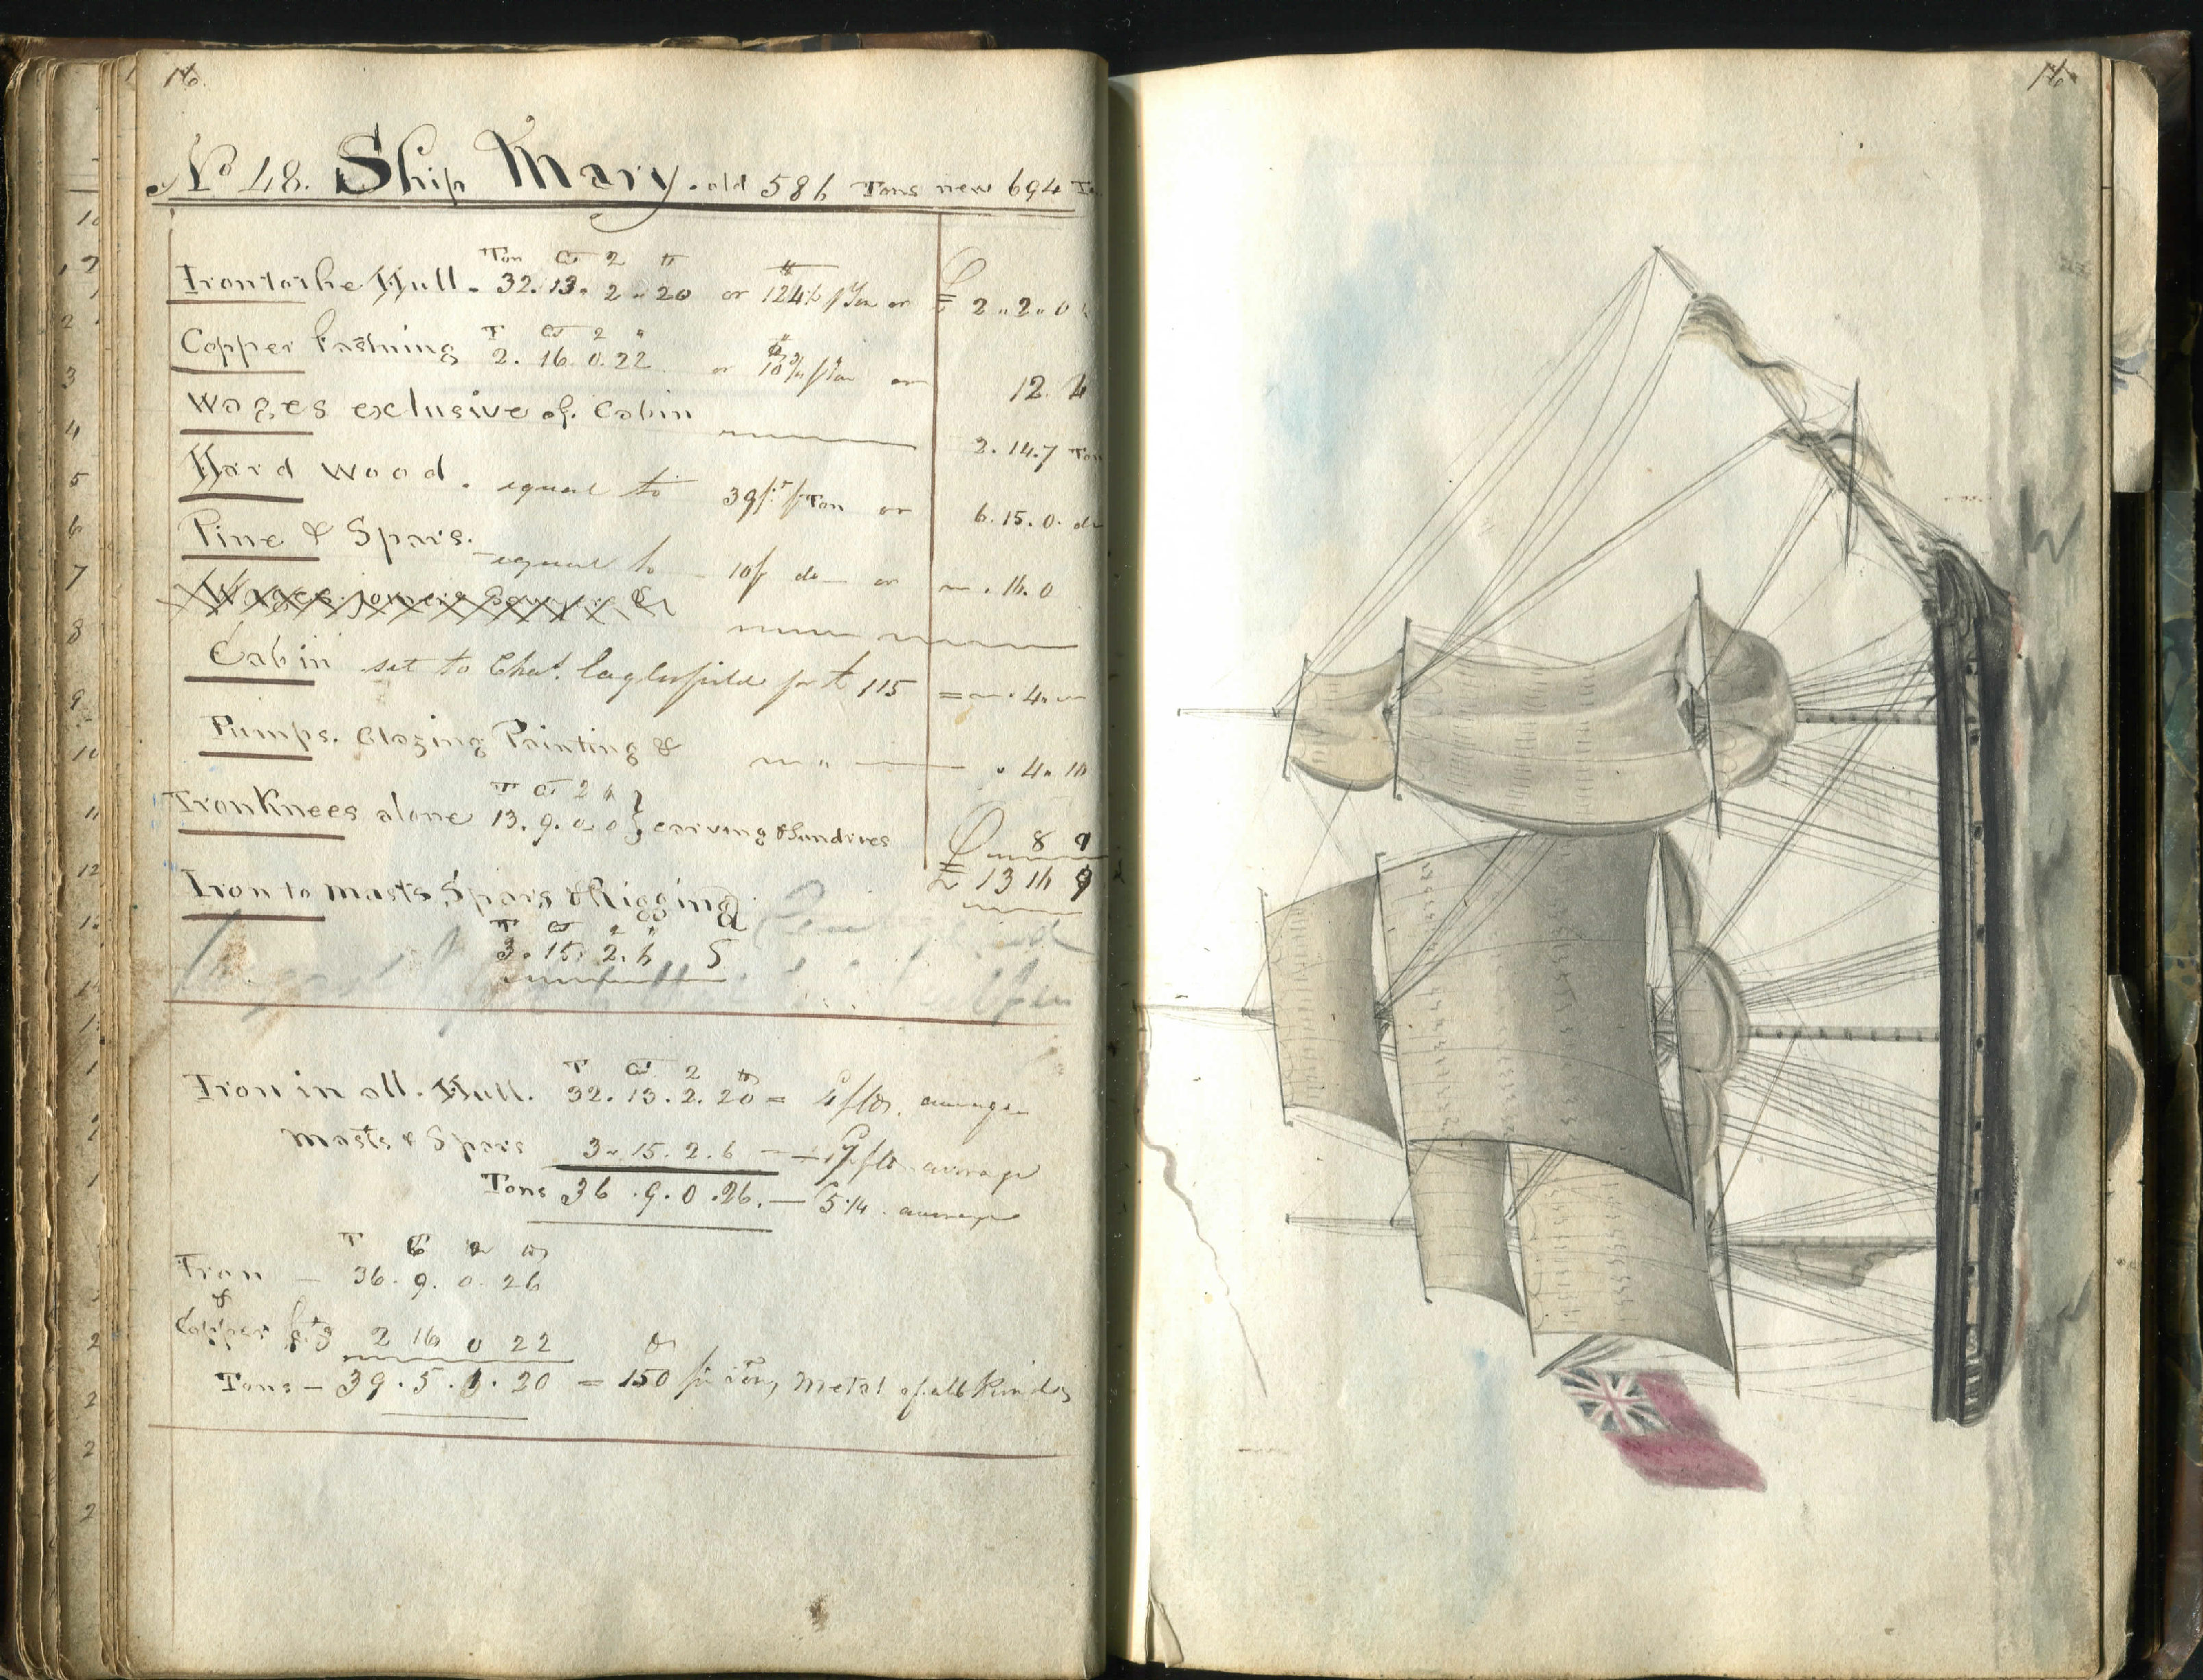 16.
No 48. Ship Mary. old 586 Tons new 694
Ton Ct 2 lb
Iron to the Hull. 32. 13. 2. 20 or 124½ p Ton or £ 2.. 2.. 0
T Ct 2 "
Copper Fastning 2. 16. 0. 22 or p Ton or 12. 6
Wages exclusive of Cabin 2. 14. 7 Ton
Hard Wood. equal to 39 ft p Ton or 6. 15. 0. do
Pine & Spars. equal to 10 f do or 16. 0
Wages joiners
Cabin set to Chas. for £ 115 = 4.
Pumps. Glazing Painting & 4. 10
T Ct 2 lb
Iron Knees alone 13. 9. 0. 0 } carving & Sundries 8 9
£ 13 16 9
Iron to masts Spars & Rigging
T Ct 2 "
3. 15. 2. 6
T Ct 2 lb
Iron in all. Hull. 32. 13. 2. 20 = average
Masts & Spars 3. 15. 2. 6 average
Tons 36. 9. 0. 26. — 5¼ average
T C 2 lb
Iron — 36. 9. 0. 26
&
Copper 2 16 0 22
Tons — 39. 5. 1. 20 = 150 metal of all kinds
16.